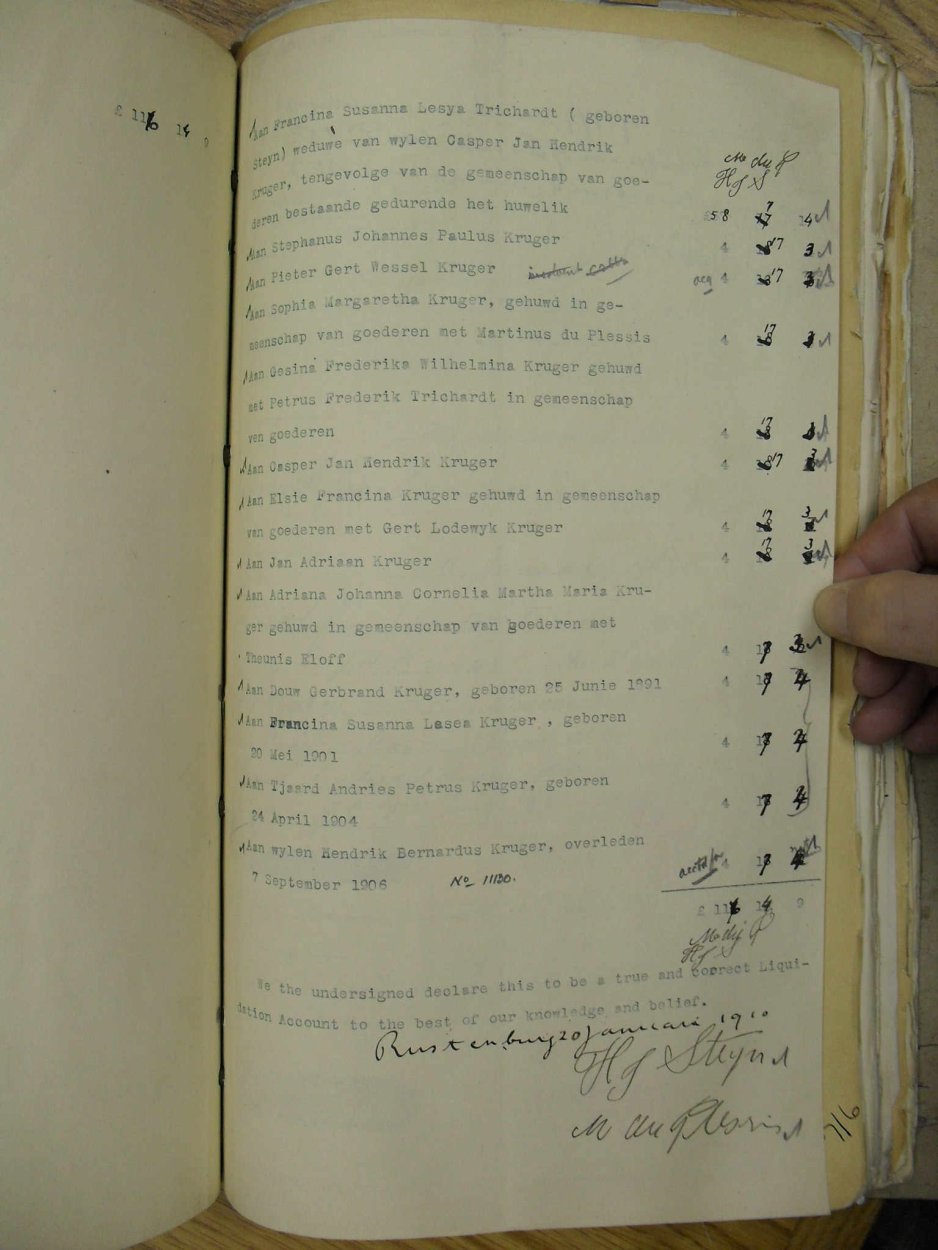 £ 116 14 9
Aan Francina Susanna Lesya Trichardt ( geboren
Steyn) weduwe van wylen Casper Jan Hendrik
M du P
Kruger, tengevolge van de gemeenschap van goe-
H J S
deren bestaande gedurende het huwelik £58 7 4
Aan Stephanus Johannes Paulus Kruger 4 17 3
Aan Pieter Gert Wessel Kruger 4 17 3
Aan Sophia Margaretha Kruger, gehuwd in ge-
meenschap van goederen met Martinus du Plessis 4 17 3
Aan Gesina Frederika Wilhelmina Kruger gehuwd
met Petrus Frederik Trichardt in gemeenschap
van goederen 4 17 3
Aan Casper Jan Hendrik Kruger 4 17 3
Aan Elsie Francina Kruger gehuwd in gemeenschap
van goederen met Gert Lodewyk Kruger 4 17 3
Aan Jan Adriaan Kruger 4 17 3
Aan Adriana Johanna Cornelia Martha Maria Kru-
ger gehuwd in gemeenschap van goederen met
Theunis Eloff 4 17 3
Aan Douw Gerbrand Kruger, geboren 25 Junie 1891 4 17 4
Aan Francina Susanna Lasea Kruger , geboren
20 Mei 1901 4 17 4
Aan Tjaard Andries Petrus Kruger, geboren
24 April 1904 4 17 4
Aan wylen Hendrik Bernardus Kruger, overleden
7 September 1906 No 11130. 4 17 4
£ 116 14 9
M du P
H J S
We the undersigned declare this to be a true and correct Liqui-
dation Account to the best of our knowledge and belief.
Rustenburg 20 Januari 1910
H J Steyn
M du Plessis
716